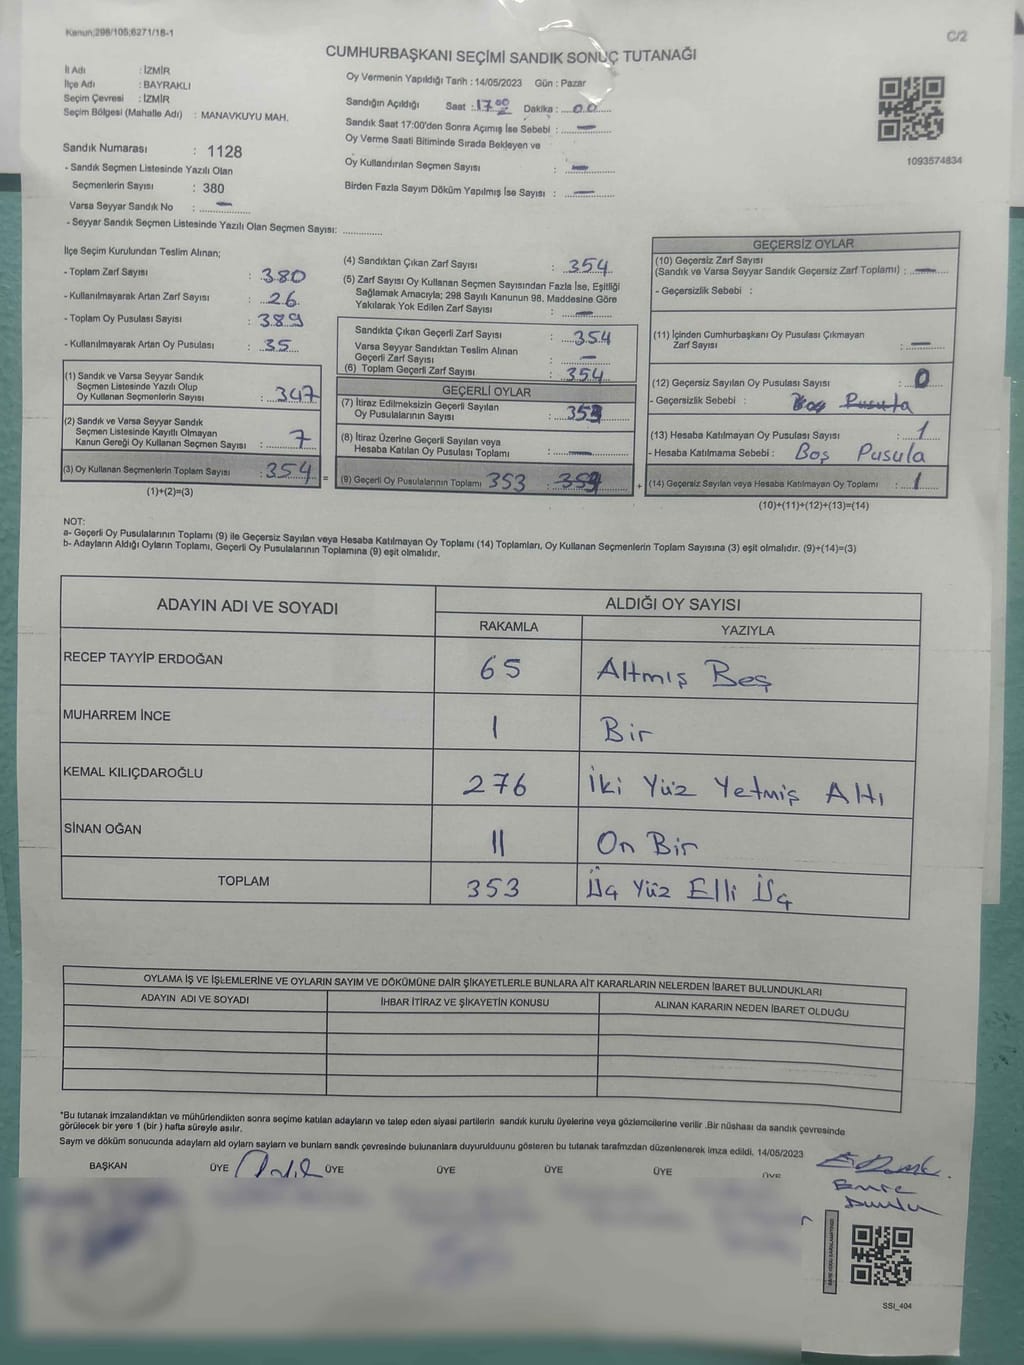 Kanun;298/105;6271/18-1
C/2
CUMHURBAŞKANI SEÇİMİ SANDIK SONUÇ TUTANAĞI
İl Adı : İZMİR
İlçe Adı : BAYRAKLI
Seçim Çevresi : İZMİR
Seçim Bölgesi (Mahalle Adı) : MANAVKUYU MAH.
Sandık Numarası : 1128
- Sandık Seçmen Listesinde Yazılı Olan
Seçmenlerin Sayısı : 380
Varsa Seyyar Sandık No : —
- Seyyar Sandık Seçmen Listesinde Yazılı Olan Seçmen Sayısı: ............
Oy Vermenin Yapıldığı Tarih : 14/05/2023 Gün : Pazar
Sandığın Açıldığı Saat : 17 00 Dakika : 00
Sandık Saat 17:00'den Sonra Açımış İse Sebebi : —
Oy Verme Saati Bitiminde Sırada Bekleyen ve
Oy Kullandırılan Seçmen Sayısı : —
Birden Fazla Sayım Döküm Yapılmış İse Sayısı : —
1093574834
İlçe Seçim Kurulundan Teslim Alınan;
- Toplam Zarf Sayısı : 380
- Kullanılmayarak Artan Zarf Sayısı : 26
- Toplam Oy Pusulası Sayısı : 389
- Kullanılmayarak Artan Oy Pusulası : 35
(1) Sandık ve Varsa Seyyar Sandık
Seçmen Listesinde Yazılı Olup
Oy Kullanan Seçmenlerin Sayısı : 347
(2) Sandık ve Varsa Seyyar Sandık
Seçmen Listesinde Kayıtlı Olmayan
Kanun Gereği Oy Kullanan Seçmen Sayısı : 7
(3) Oy Kullanan Seçmenlerin Toplam Sayısı : 354
(1)+(2)=(3)
=
(4) Sandıktan Çıkan Zarf Sayısı : 354
(5) Zarf Sayısı Oy Kullanan Seçmen Sayısından Fazla İse, Eşitliği
Sağlamak Amacıyla; 298 Sayılı Kanunun 98. Maddesine Göre
Yakılarak Yok Edilen Zarf Sayısı : —
Sandıkta Çıkan Geçerli Zarf Sayısı : 354
Varsa Seyyar Sandıktan Teslim Alınan
Geçerli Zarf Sayısı : —
(6) Toplam Geçerli Zarf Sayısı : 354
GEÇERLİ OYLAR
(7) İtiraz Edilmeksizin Geçerli Sayılan
Oy Pusulalarının Sayısı : 353
(8) İtiraz Üzerine Geçerli Sayılan veya
Hesaba Katılan Oy Pusulası Toplamı : —
(9) Geçerli Oy Pusulalarının Toplamı 353
+
GEÇERSİZ OYLAR
(10) Geçersiz Zarf Sayısı
(Sandık ve Varsa Seyyar Sandık Geçersiz Zarf Toplamı) : —
- Geçersizlik Sebebi :
(11) İçinden Cumhurbaşkanı Oy Pusulası Çıkmayan
Zarf Sayısı : —
(12) Geçersiz Sayılan Oy Pusulası Sayısı : 0
- Geçersizlik Sebebi : Boş Pusula
(13) Hesaba Katılmayan Oy Pusulası Sayısı : 1
- Hesaba Katılmama Sebebi : Boş Pusula
(14) Geçersiz Sayılan veya Hesaba Katılmayan Oy Toplamı : 1
(10)+(11)+(12)+(13)=(14)
NOT:
a- Geçerli Oy Pusulalarının Toplamı (9) ile Geçersiz Sayılan veya Hesaba Katılmayan Oy Toplamı (14) Toplamları, Oy Kullanan Seçmenlerin Toplam Sayısına (3) eşit olmalıdır. (9)+(14)=(3)
b- Adayların Aldığı Oyların Toplamı, Geçerli Oy Pusulalarının Toplamına (9) eşit olmalıdır.
ADAYIN ADI VE SOYADI
ALDIĞI OY SAYISI
RAKAMLA YAZIYLA
RECEP TAYYİP ERDOĞAN 65 Altmış Beş
MUHARREM İNCE 1 Bir
KEMAL KILIÇDAROĞLU 276 İki Yüz Yetmiş Altı
SİNAN OĞAN 11 On Bir
TOPLAM 353 Üç Yüz Elli Üç
OYLAMA İŞ VE İŞLEMLERİNE VE OYLARIN SAYIM VE DÖKÜMÜNE DAİR ŞİKAYETLERLE BUNLARA AİT KARARLARIN NELERDEN İBARET BULUNDUKLARI
ADAYIN ADI VE SOYADI İHBAR İTİRAZ VE ŞİKAYETİN KONUSU ALINAN KARARIN NEDEN İBARET OLDUĞU
*Bu tutanak imzalandıktan ve mühürlendikten sonra seçime katılan adayların ve talep eden siyasi partilerin sandık kurulu üyelerine veya gözlemcilerine verilir .Bir nüshası da sandık çevresinde
görülecek bir yere 1 (bir ) hafta süreyle asılır.
Sayım ve döküm sonucunda adayların aldı oyların sayıları ve bunların sandık çevresinde bulunanlara duyurulduunu gösteren bu tutanak tarafımızdan düzenlenerek imza edildi. 14/05/2023
BAŞKAN ÜYE ÜYE ÜYE ÜYE ÜYE ÜYE
Emre
SSI_404